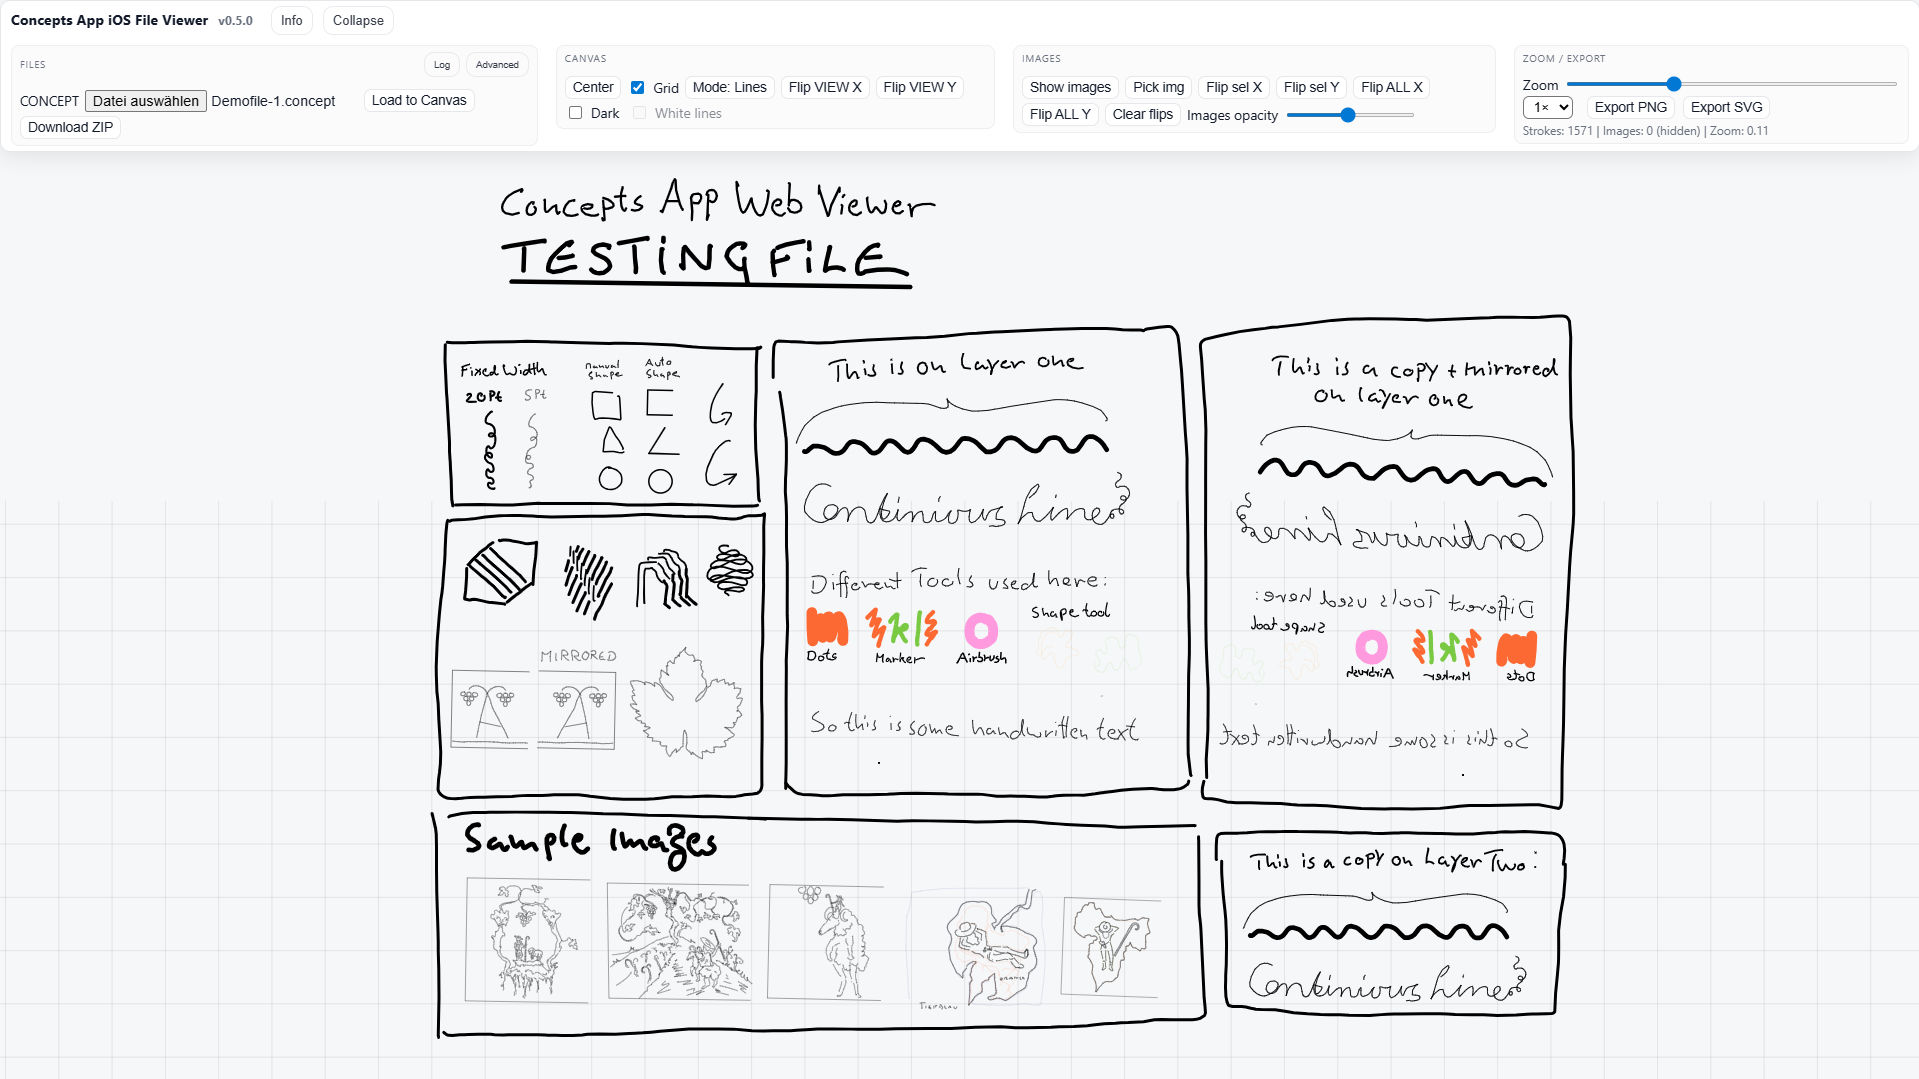 Concepts App iOS File Viewer v0.5.0 Info Collapse
FILES Log Advanced
CONCEPT Datei auswählen Demofile-1.concept Load to Canvas
Download ZIP
CANVAS
Center Grid Mode: Lines Flip VIEW X Flip VIEW Y
Dark White lines
IMAGES
Show images Pick img Flip sel X Flip sel Y Flip ALL X
Flip ALL Y Clear flips Images opacity
ZOOM / EXPORT
Zoom
1× Export PNG Export SVG
Strokes: 1571 | Images: 0 (hidden) | Zoom: 0.11
Concepts App Web Viewer
TESTING FILE
Fixed Width
20Pt 5Pt
Manual Shape
Auto Shape
MIRRORED
This is on Layer one
Continiuus Lines
Different Tools used here:
Shape tool
Dots Marker Airbrush
So this is some handwritten text
This is a copy + mirrored
on layer one
Continiuus Lines
Different Tools used here:
Shape tool
Dots Marker Airbrush
So this is some handwritten text
Sample Images
This is a copy on Layer Two:
Continiuus Lines